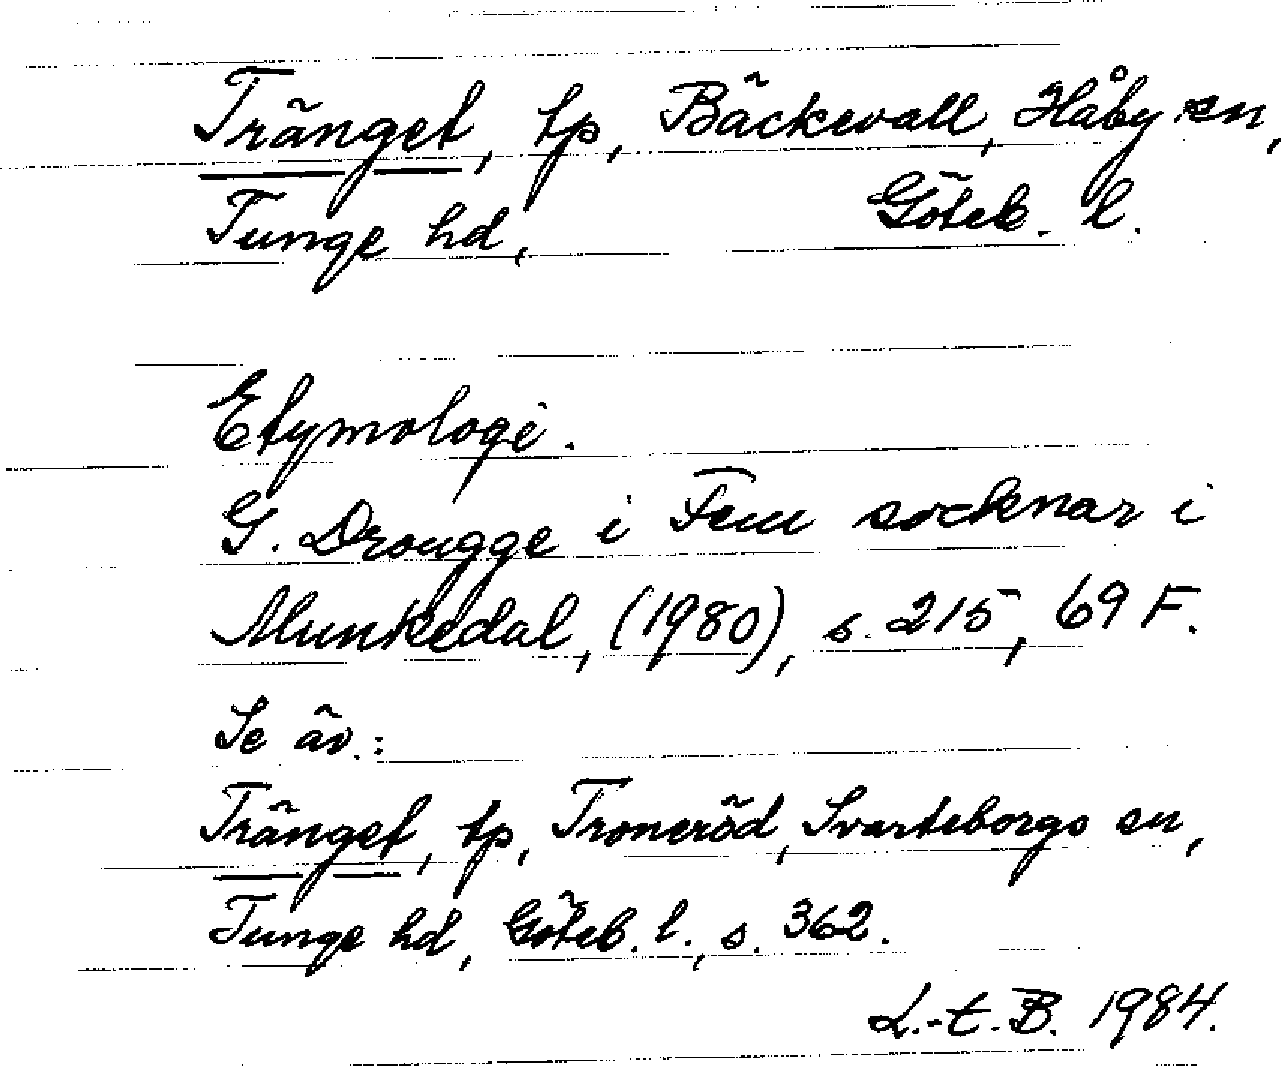 Tränget, tp, Bäckevall, Håby sn,
Tunge hd, Göteb. l.
Etymologi.
G. Drougge i Fem socknar i
Munkedal, (1980), s. 215, 69 F.
Se äv.:
Tränget, tp, Troneröd, Svarteborgs sn,
Tunge hd, Göteb. l., s. 362.
L.-E. B. 1984.